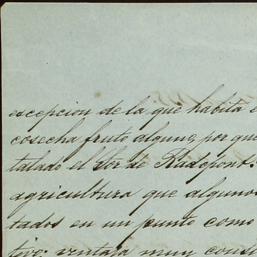 escepcion de la que habita
cosecha fruto alguno, por que
talado el Sor de Radepont
agricultura que algunos
tados en un punto como
tivo: ventaja muy